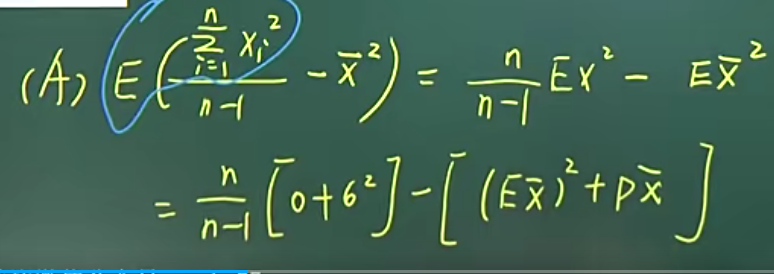 (A) E(∑_{i=1}^{n} x_i² / (n-1) - x̄²) = n/(n-1) Ex² - Ex̄²
= n/(n-1) [0+6²] - [(Ex̄)² + Dx̄]